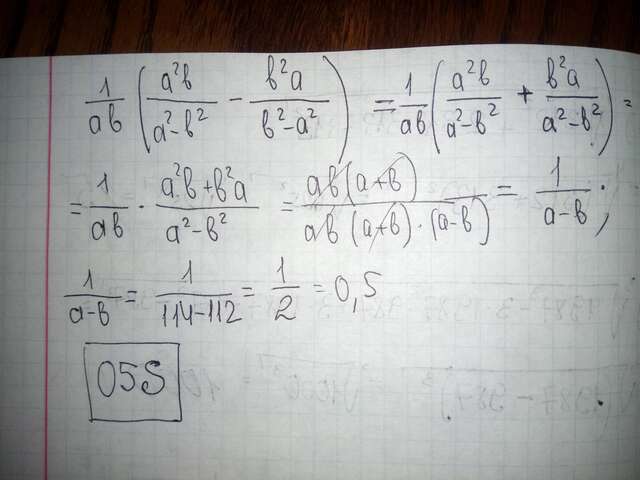 1/ab (a²b/(a²-b²) - b²a/(b²-a²)) = 1/ab (a²b/(a²-b²) + b²a/(a²-b²)) =
= 1/ab · (a²b+b²a)/(a²-b²) = ab(a+b)/(ab(a+b)·(a-b)) = 1/(a-b);
1/(a-b) = 1/(114-112) = 1/2 = 0,5